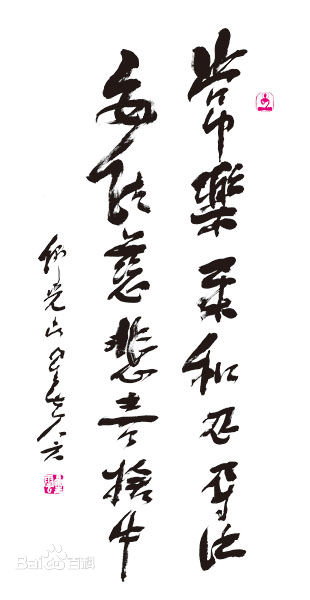 常樂柔和忍辱法
安住慈悲喜捨中
佛光山星雲
Baidu百科